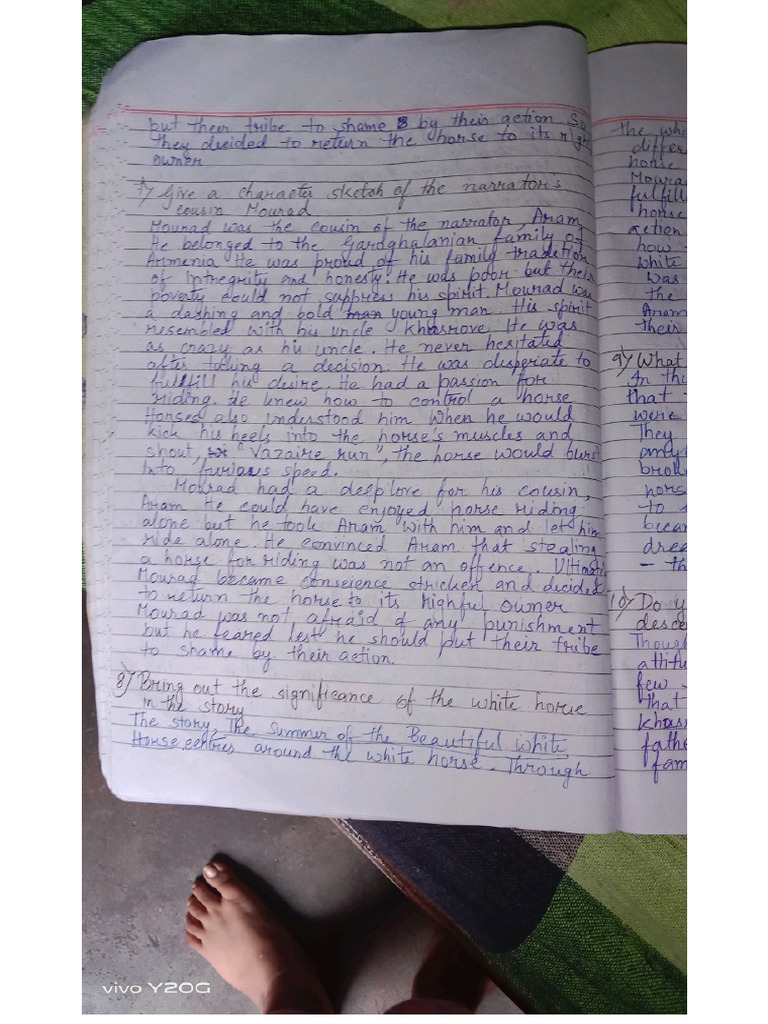 but their tribe to shame by their action So
they decided to return the horse to its righ
owner
7) Give a character sketch of the narrator's
cousin Mourad
Mourad was the cousin of the narrator, Aram,
He belonged to the Garoghalanian family of
Armenia He was proud of his family tradition
of intregrity and honesty. He was poor but their
poverty could not suppress his spirit. Mourad was
a dashing and bold man young man. His spirit
resembled with his uncle Khosrove. He was
as crazy as his uncle. He never hesitated
after taking a decision. He was desperate to
fullfill his desire. He had a passion for
riding. He knew how to control a horse
Horses also understood him When he would
kick his heels into the horse's muscles and
shout, "Vazaire run", the horse would burst
into furious speed.
Mourad had a deep love for his cousin,
Aram He could have enjoyed horse riding
alone but he took Aram with him and let him
ride alone. He convinced Aram that stealing
a horse for riding was not an offence. Ultimat
Mourad became conseience stricken and decided
to return the horse to its righful owner
Mourad was not afraid of any punishment
but he feared lest he should put their tribe
to shame by their action.
8) Bring out the significance of the white horse
in the story
The story, The Summer of the Beautiful white
Horse centres around the white horse. Through
the wh
differ
horse
Moura
fulfill
horse
action
how
white
was
the
Aram
their
9) What
In thi
that
were
They
amy
brok
hors
to
becam
dree
- th
10) Do y
desce
Though
attitu
few
that
khas
fathe
fam
vivo Y20G